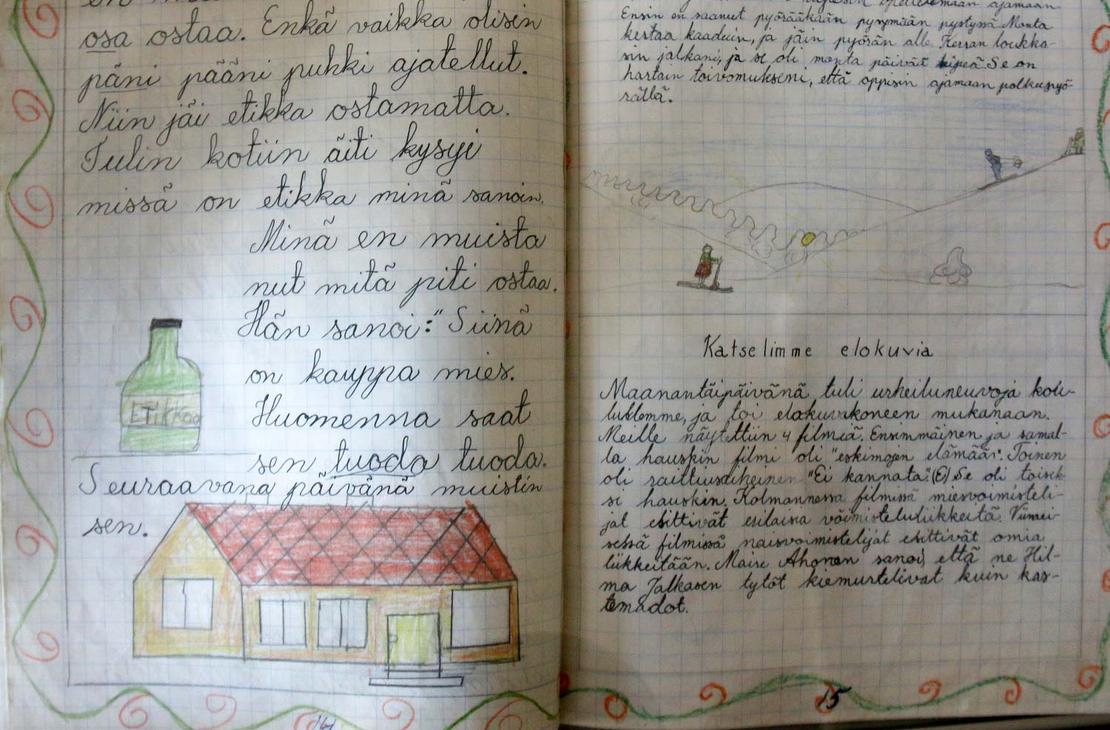 osa ostaa. Enkä vaikka olisin
päni pääni puhki ajatellut.
Niin jäi etikka ostamatta.
Tulin kotiin äiti kysyi
missä on etikka minä sanoin.
Minä en muista
nut mitä piti ostaa.
Hän sanoi: "Siinä
on kauppa mies.
Huomenna saat
sen tuoda tuoda.
Seuraavana päivänä muistin
sen.
ETIKKAA
14
ajamaan
Ensin en saanut pyörääkään pysymään pystyssä Monta
kertaa kaaduin, ja jäin pyörän alle. Kerran loukka-
sin jalkani, ja se oli monta päivät kipeä Se on
hartain toivomukseni, että oppisin ajamaan polkupyö-
rällä.
Katselimme elokuvia
Maanantaipäivänä, tuli urheiluneuvoja kou-
lullemme, ja toi elokuvakoneen mukanaan.
Meille näytettiin 4 filmiä. Ensimmäinen ja samal-
la hauskin filmi oli "eskimojen elämää". Toinen
oli raittiusaiheinen "Ei kannata." (E) Se oli toisek
si hauskin. Kolmannessa filmissä miesvoimisteli-
jat esittivät erilaisia voimisteluliikkeitä. Viimei-
sessä filmissä naisvoimistelijat esittivät omia
liikkeitään. Maire Ahonen sanoi, että ne Hil-
ma Jalkasen tytöt kiemurtelivat kuin kas-
temadot.
15